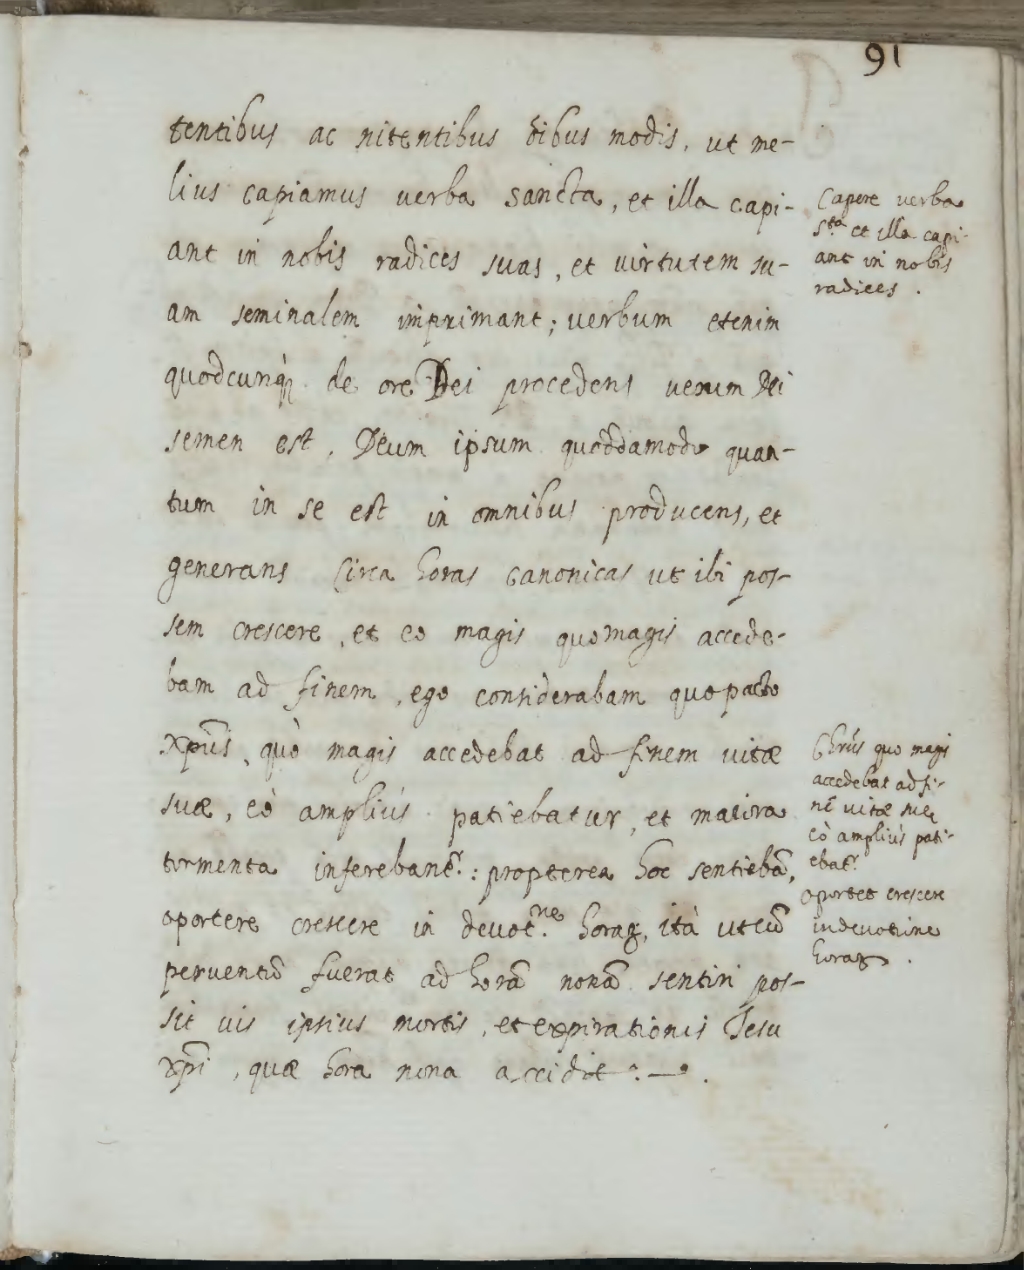 91
tentibus ac nitentibus õibus modis, ut me-
lius capiamus verba sancta, et illa capi-
ant in nobis radices suas, et virtutem su-
am seminalem imprimant; verbum etenim
quodcunq; de ore Dei procedens verum Dei
semen est, Deum ipsum quoddamodo quan-
tum in se est in omnibus producens, et
generans Circa horas canonicas ut ibi pos-
sem crescere, et eo magis quo magis accede-
bam ad finem, ego considerabam quo pacto
Xpũs, quò magis accedebat ad finem vitæ
suæ, eò ampliùs patiebatur, et maiora
tormenta inferebantr: propterea hoc sentiebã,
oportere crescere in devotne horaꝝ, ità ut cũ
perventũ fuerat ad horã nonã sentiri pos-
sit vis ipsius mortis, et expirationis Jesu
Xpĩ, quæ hora nona accidit: — .
Capere verba
Sta et illa capi-
ant in nobis
radices.
Chrũs quo magis
accedebat ad fi-
nẽ vitæ suę
eò ampliùs pati-
ebatr
oportet crescere
in devotione
horaꝝ.